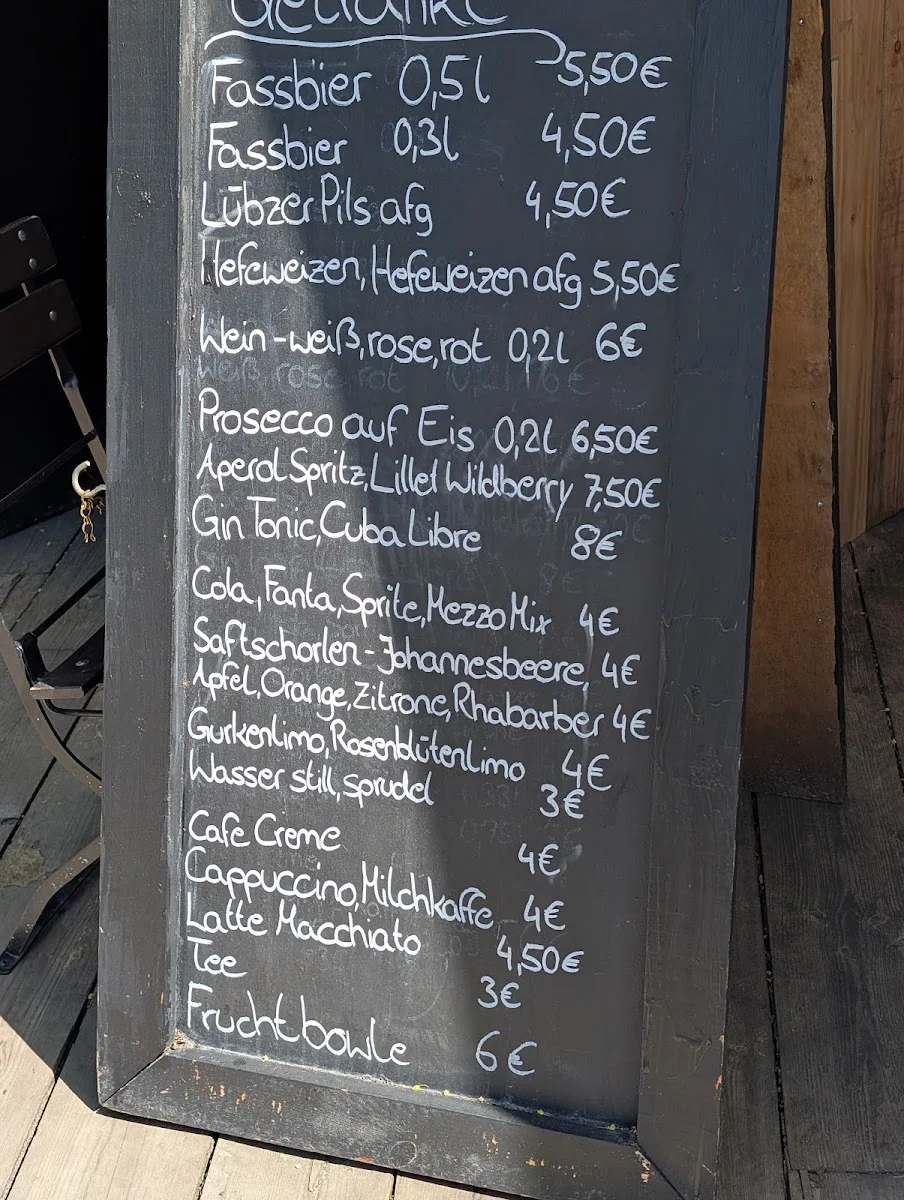 Getränke
Fassbier 0,5l 5,50€
Fassbier 0,3l 4,50€
Lübzer Pils afg 4,50€
Hefeweizen, Hefeweizen afg 5,50€
Wein-weiß, rose, rot 0,2l 6€
weiß, rose, rot 0,2l 6€
Prosecco auf Eis 0,2l 6,50€
Aperol Spritz, Lillet Wildberry 7,50€
Gin Tonic, Cuba Libre 8€
Cola, Fanta, Sprite, Mezzo Mix 4€
Saftschorlen-Johannesbeere, 4€
Apfel, Orange, Zitrone, Rhabarber 4€
Gurkenlimo, Rosenblütenlimo 4€
Wasser still, sprudel 3€
Cafe Creme 4€
Cappuccino, Milchkaffe 4€
Latte Macchiato 4,50€
Tee 3€
Fruchtbowle 6€